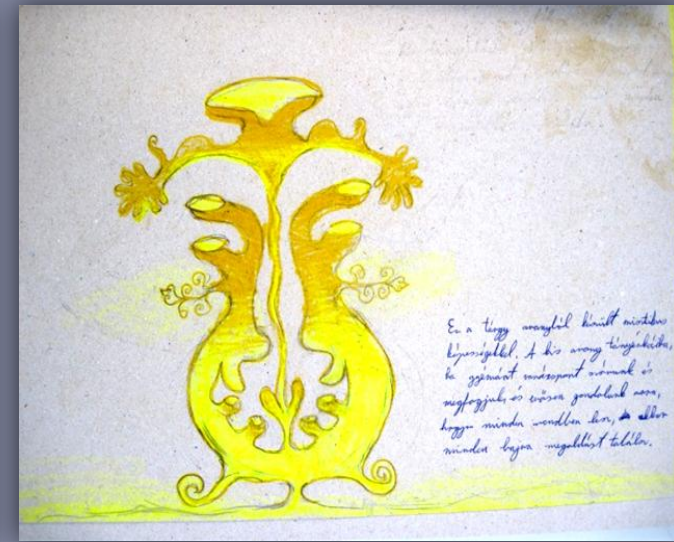 Ez a tárgy aranyból készült misztikus
képességekkel. A kis arany tányérkákba,
ha gyémánt mászport szórunk és
megfogjuk és erősen gondolunk arra,
hogy minden rendben lesz, akkor
minden bajra megoldást találsz.